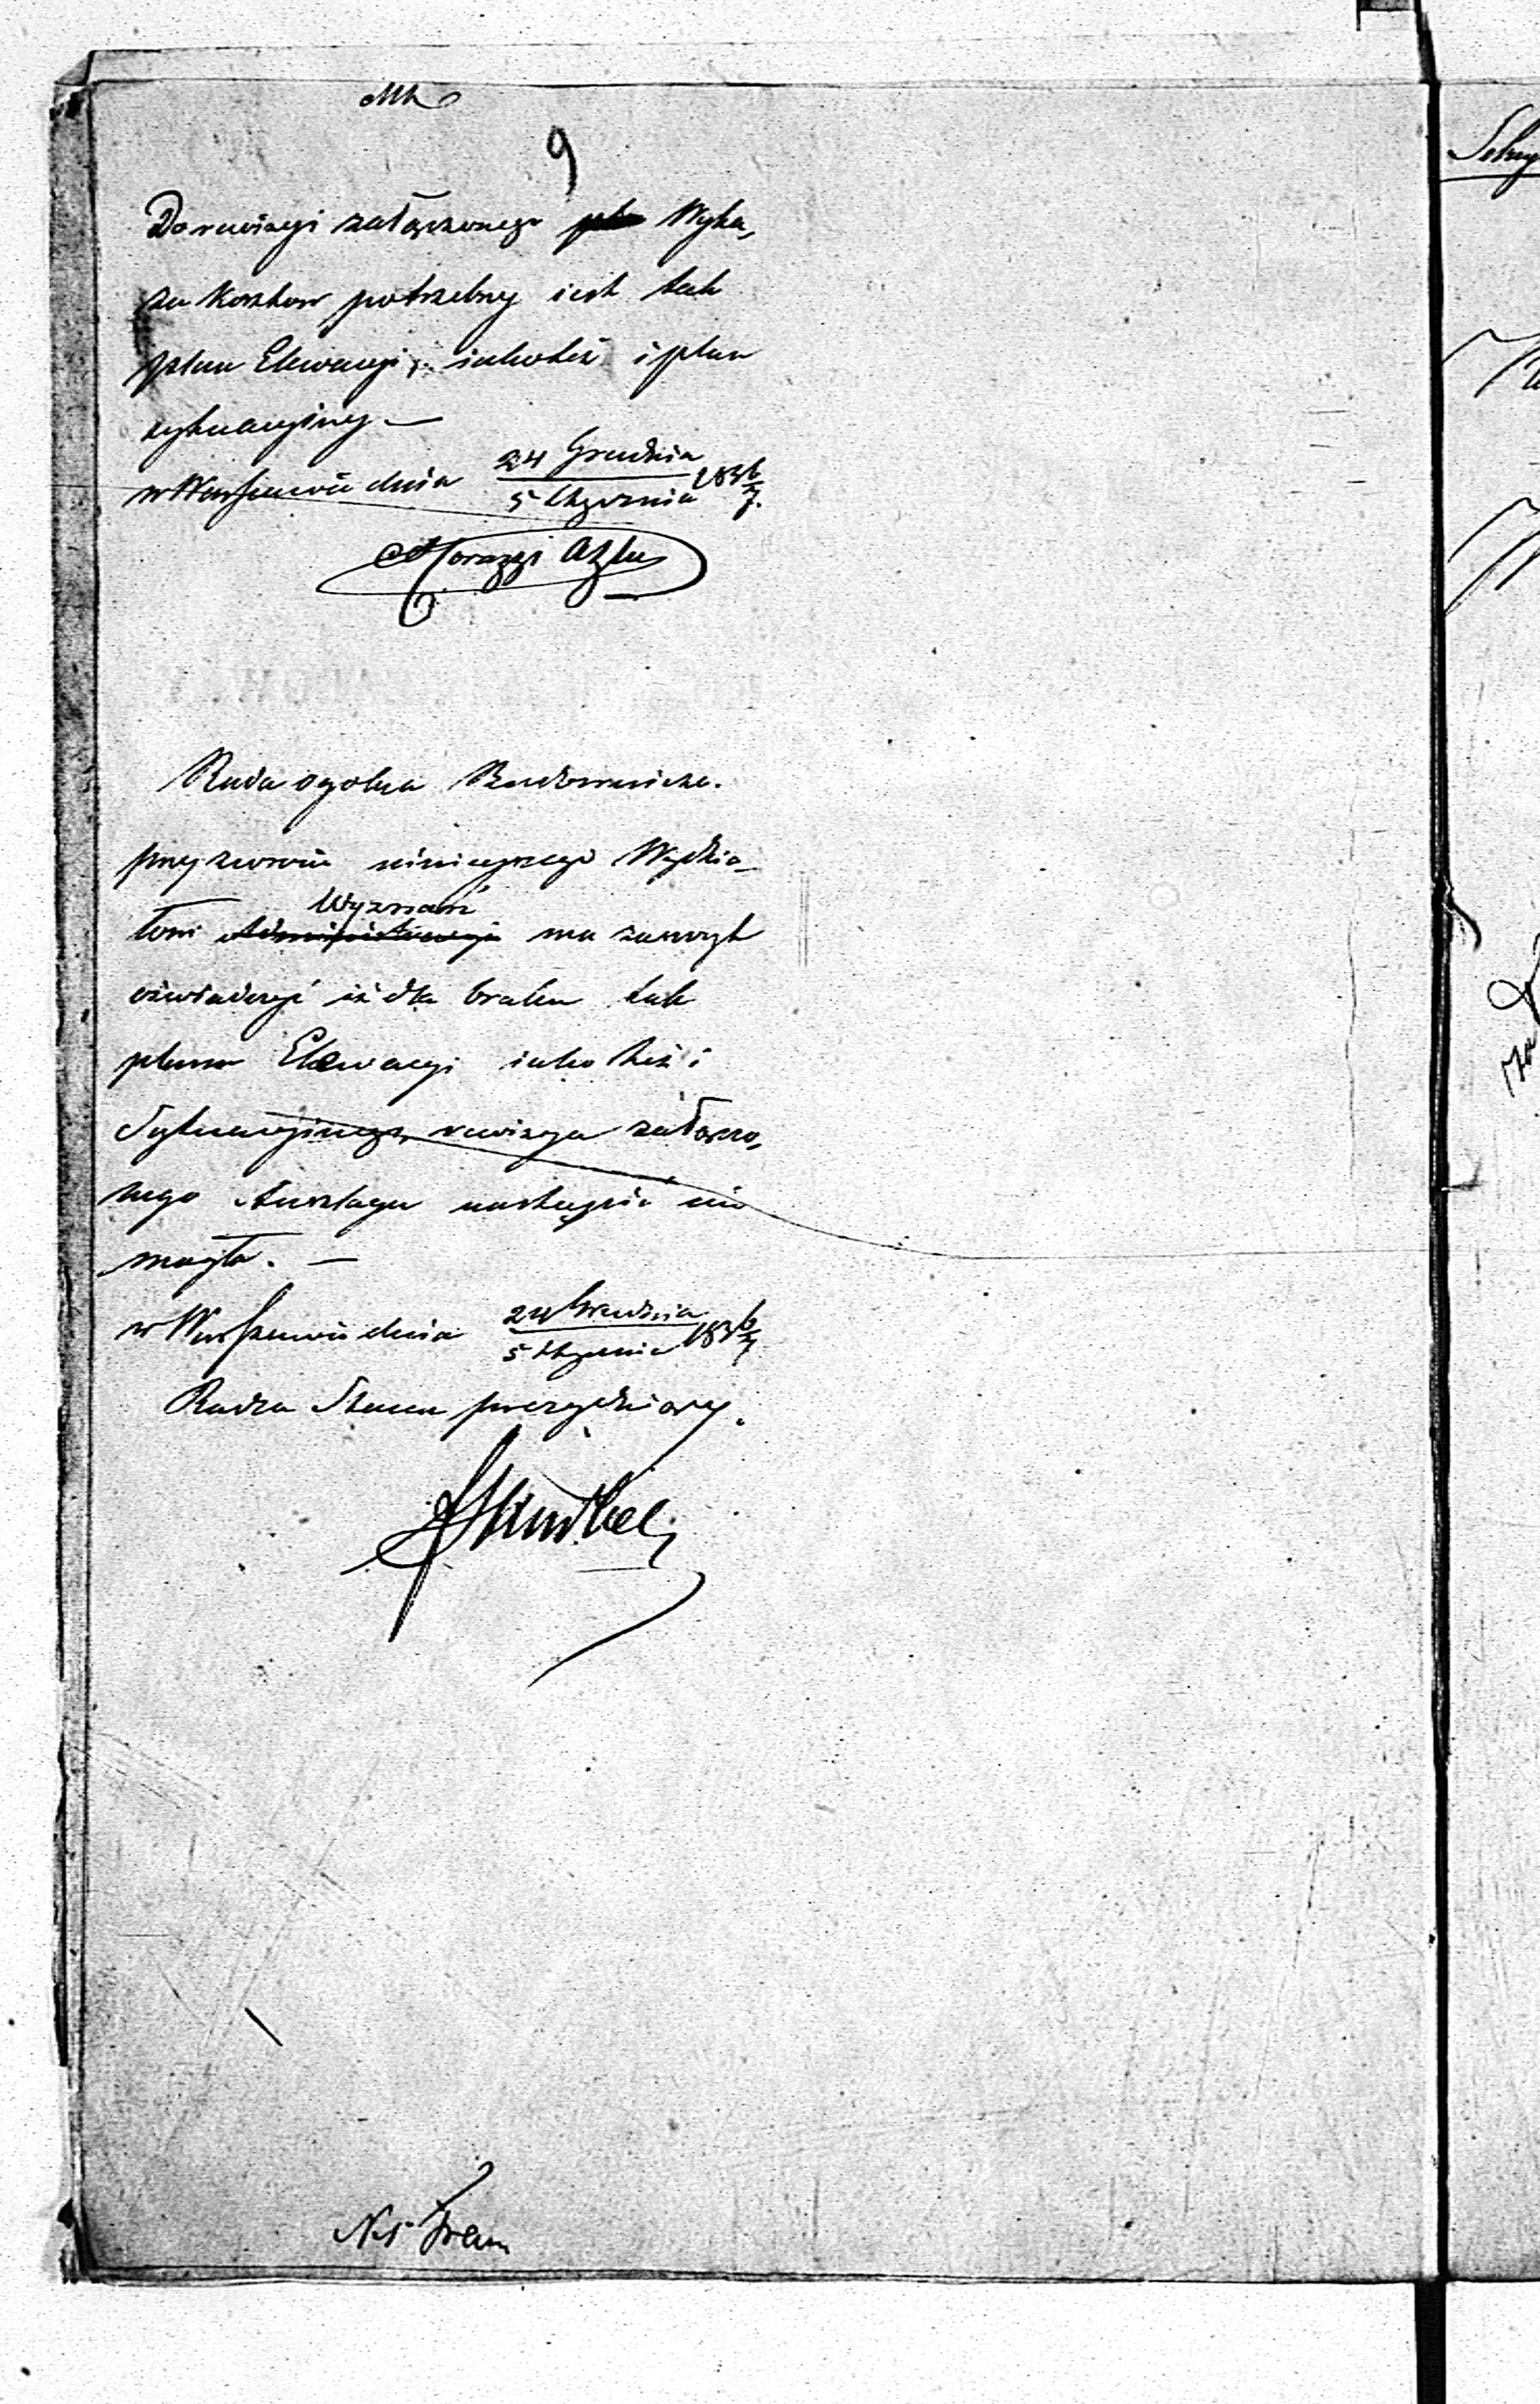 9
Do rewizyi załączonego Wyka,
zu Kosztow potrzebny iest tak
plan Elewacyi, iakoteż i plan
sytuacyiny. —
w Warszawie dnia 24 Grudnia / 5 Stycznia 1836/7.
Corazzi
Rada ogolna Budownicza.
przy zwrocie ninieyszego Wydzia-
Wyznań
łowi Administracyi ma zaszczyt
oświadczyć iż dla braku tak
planu Elewacyi iako też i
Sytuacyinego, rewizya załączo,
nego Anszlagu nastąpić nie
mogła. —
w Warszawie dnia 24 Grudnia / 5 Stycznia 1836/7
Radca Stanu prezyduiący.